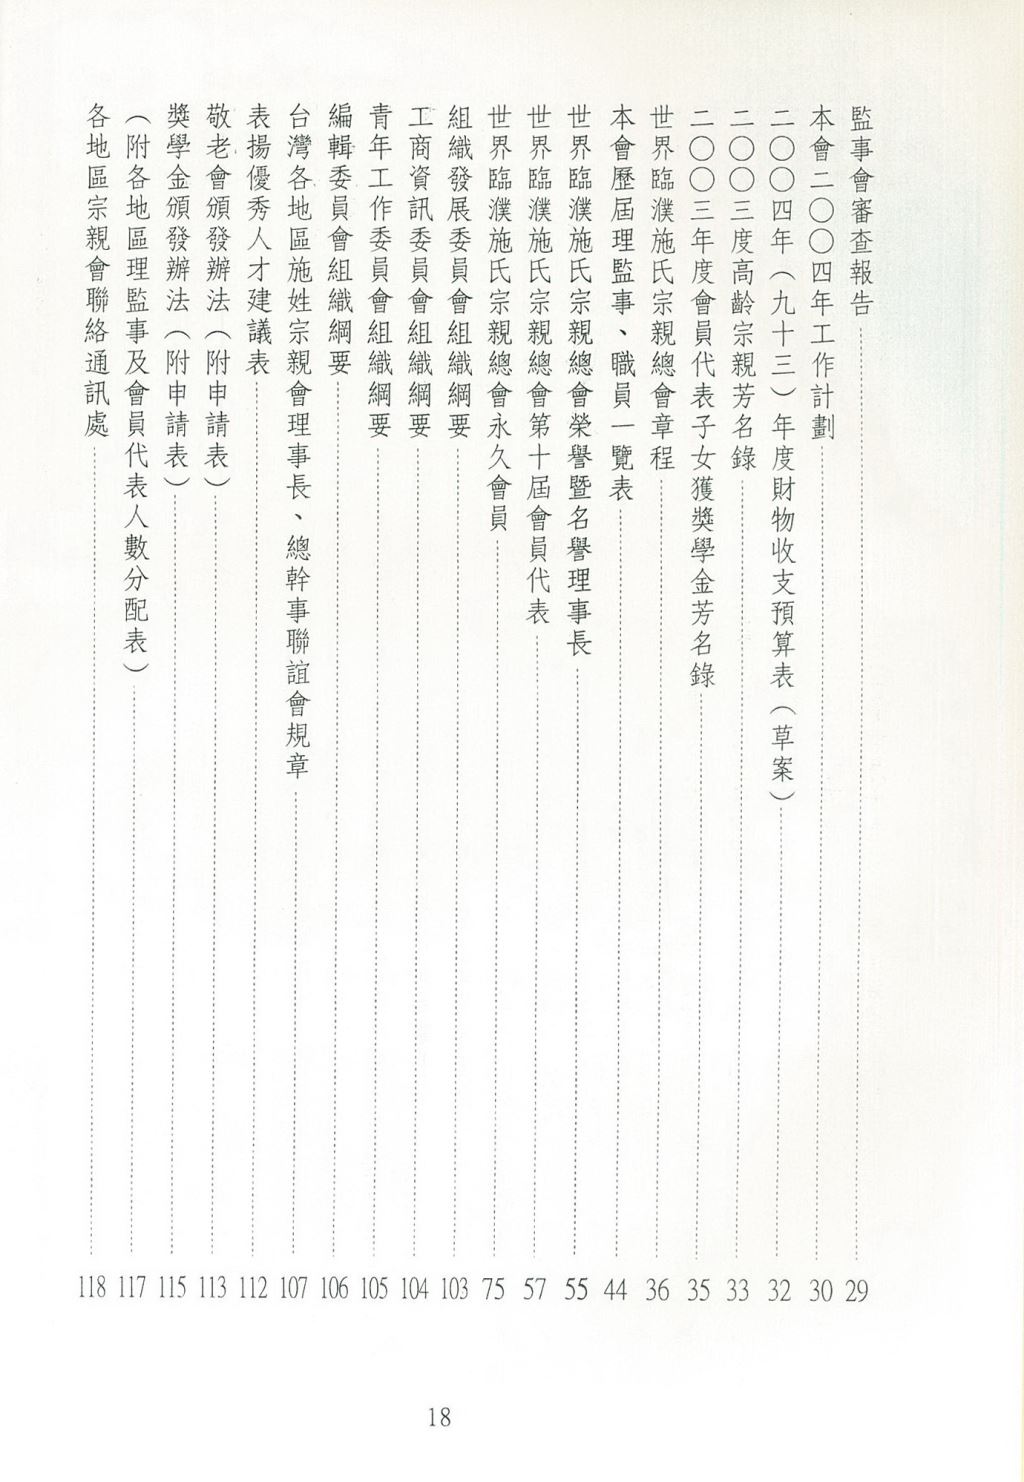 監事會審查報告 29
本會二〇〇四年工作計劃 30
二〇〇四年（九十三）年度財物收支預算表（草案） 32
二〇〇三度高齡宗親芳名錄 33
二〇〇三年度會員代表子女獲獎學金芳名錄 35
世界臨濮施氏宗親總會章程 36
本會歷屆理監事、職員一覽表 44
世界臨濮施氏宗親總會榮譽暨名譽理事長 55
世界臨濮施氏宗親總會第十屆會員代表 57
世界臨濮施氏宗親總會永久會員 75
組織發展委員會組織綱要 103
工商資訊委員會組織綱要 104
青年工作委員會組織綱要 105
編輯委員會組織綱要 106
台灣各地區施姓宗親會理事長、總幹事聯誼會規章 107
表揚優秀人才建議表 112
敬老會頒發辦法（附申請表） 113
獎學金頒發辦法（附申請表） 115
（附各地區理監事及會員代表人數分配表） 117
各地區宗親會聯絡通訊處 118
18